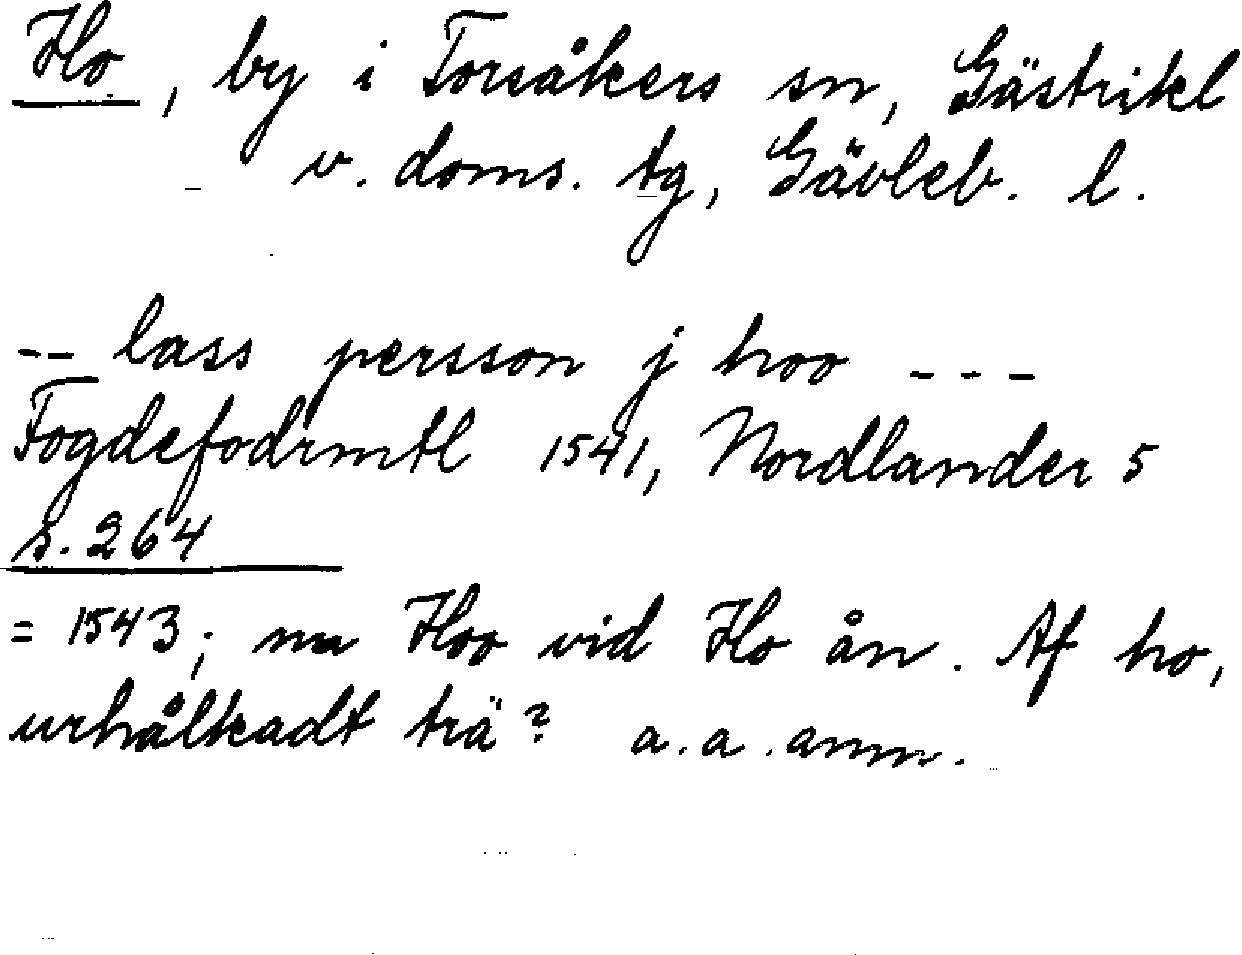 Ho, by i Torsåkers sn, Gästrikl
v. doms. tg, Gävleb. l.
-- lass persson j hoo ---
Fogdefodrmtl 1541, Nordlander 5
s. 264
= 1543; nu Hoo vid Ho ån. Af ho,
urhålkadt trä? a.a. anm.